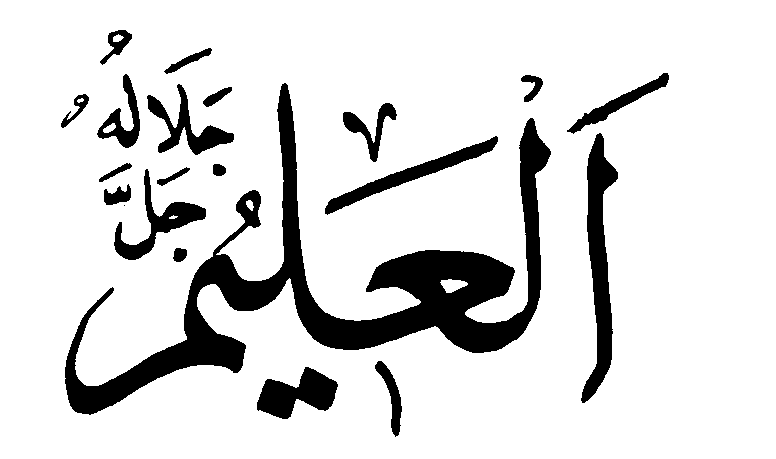 اَلْعَلِيمُ
جَلَّ
جَلَالُهُ